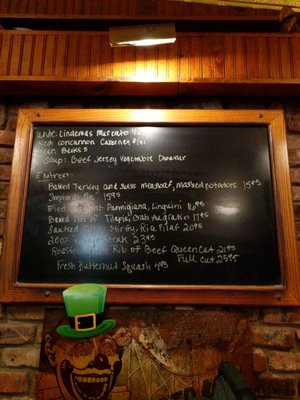 White: Lindemans Moscato
Red: Concannon Cabernet
Beer: Becks 5
Soup: Beef Jersey Vegetable Chowder
Entrees:
Baked Turkey and Swiss meatloaf, mashed potatoes 15.95
Shepherds Pie 15.95
Fried Parmigiana, Linguini 16.95
Baked of Tilapia, Crab Augratin 17.95
Sauteed Stirfry, Rice Pilaf 20.95
20oz Steak 23.95
Roasted Rib of Beef Queen Cut 21.95
Full Cut 25.95
Fresh Butternut Squash